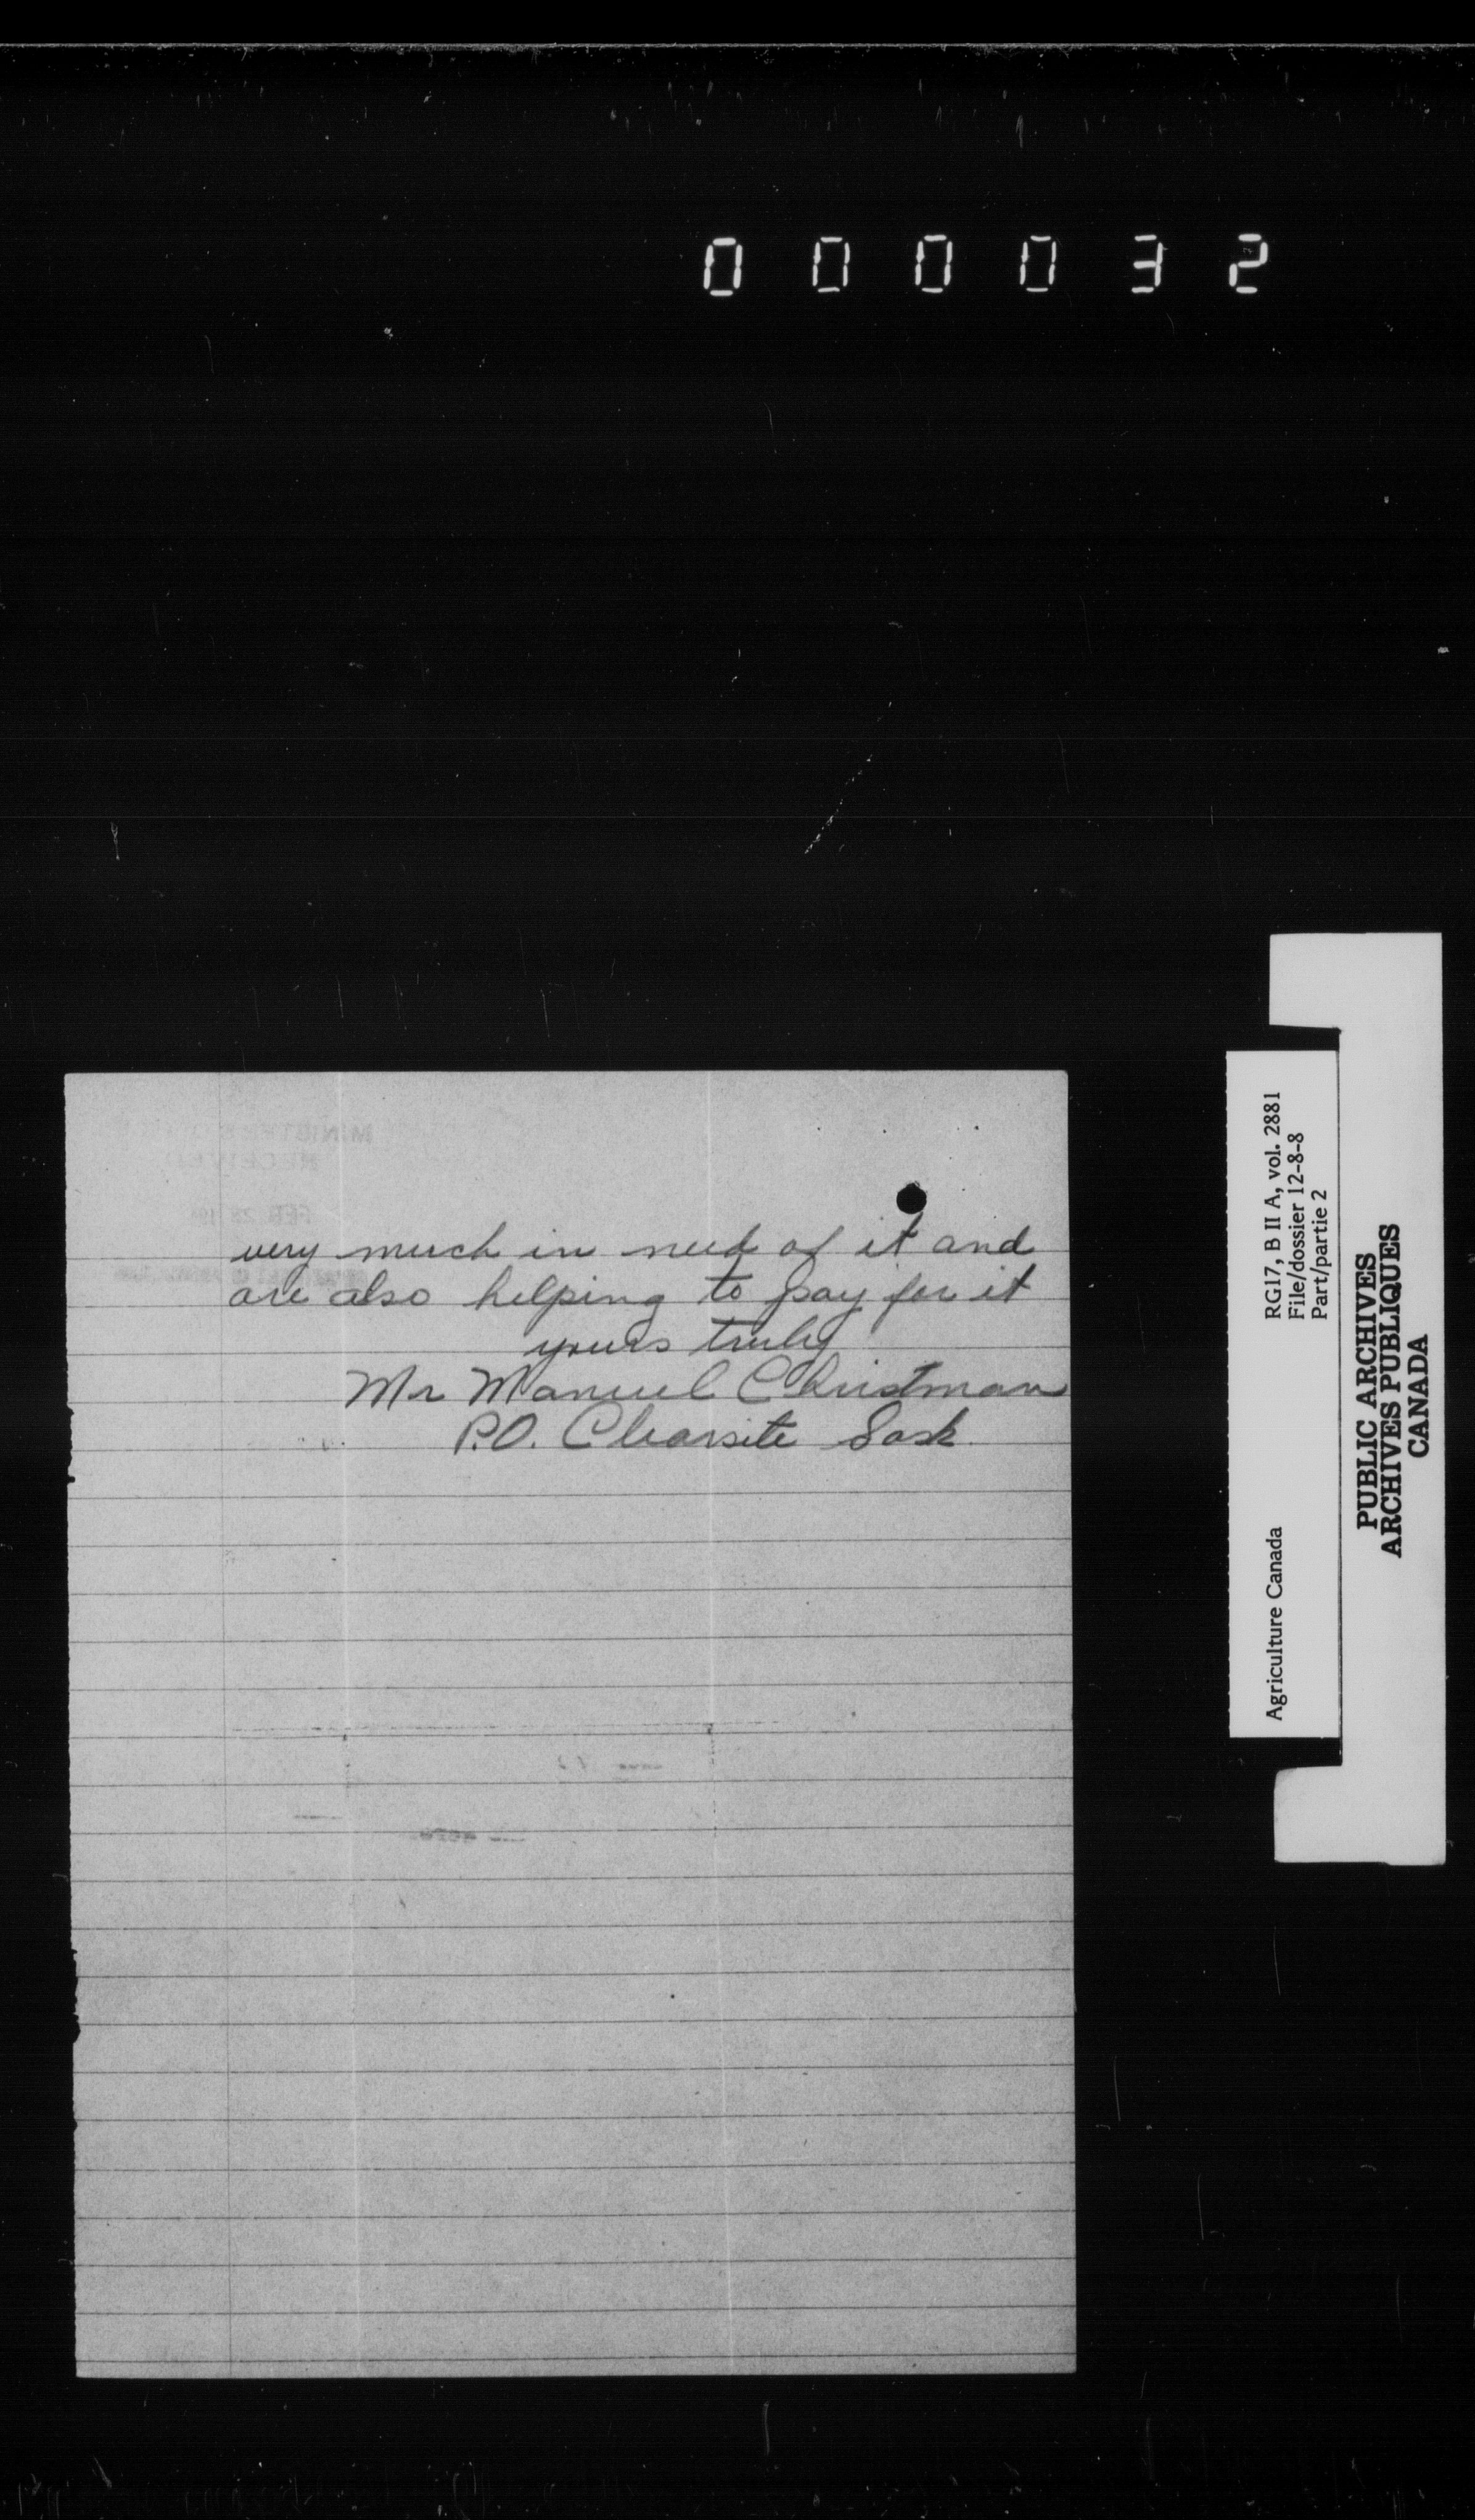 000032
very much in need of it and
are also helping to pay for it
yours truly
Mr Manuel Christman
P.O. Clearsite Sask.
RG17, B II A, vol. 2881
File/dossier 12-8-8
Part/partie 2
Agriculture Canada
PUBLIC ARCHIVES
ARCHIVES PUBLIQUES
CANADA